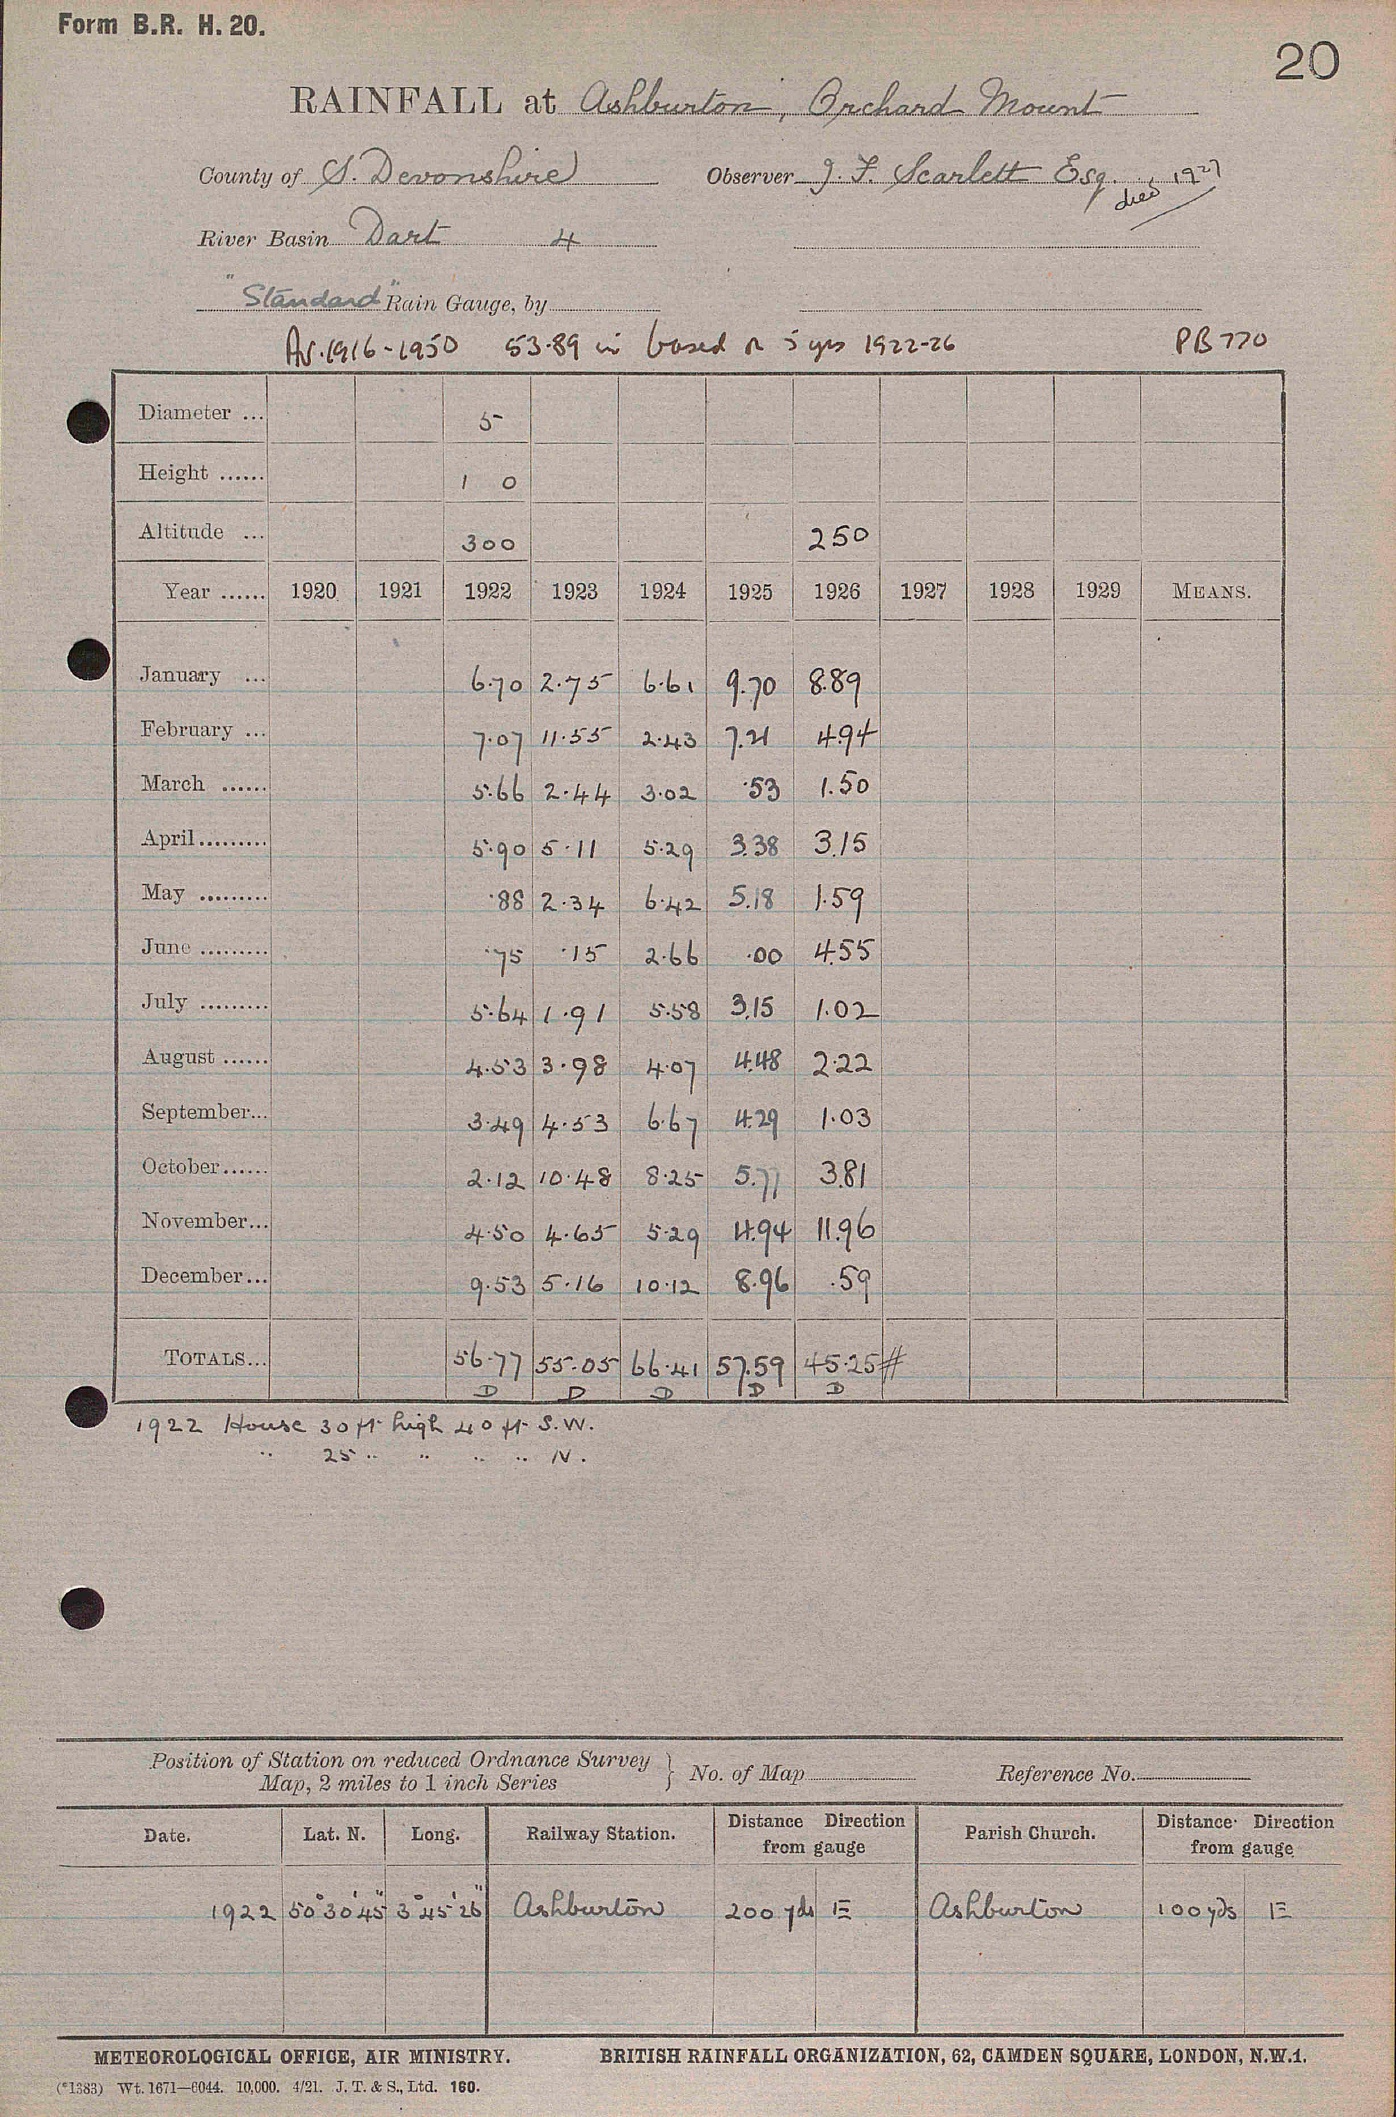 Form B.R. H. 20.
20
RAINFALL at Ashburton, Orchard Mount
County of S. Devonshire Observer J. F. Scarlett Esq. died 1927
River Basin Dart 4
"Standard" Rain Gauge, by
Av. 1916-1950 53.89 in based on 5 yrs 1922-26 PB 770
Diameter ... 5
Height ...... 1 0
Altitude ... 300 250
Year ...... 1920 1921 1922 1923 1924 1925 1926 1927 1928 1929 MEANS.
January ... 6.70 2.75 6.61 9.70 8.89
February ... 7.07 11.55 2.43 7.21 4.94
March ...... 5.66 2.44 3.02 .53 1.50
April ......... 5.90 5.11 5.29 3.38 3.15
May ......... .88 2.34 6.42 5.18 1.59
June ......... .75 .15 2.66 .00 4.55
July ......... 5.64 1.91 5.58 3.15 1.02
August ...... 4.53 3.98 4.07 4.48 2.22
September... 3.49 4.53 6.67 4.29 1.03
October...... 2.12 10.48 8.25 5.77 3.81
November... 4.50 4.65 5.29 4.94 11.96
December... 9.53 5.16 10.12 8.96 .59
TOTALS... 56.77 55.05 66.41 57.59 45.25 #
D D D D D
1922 House 30 ft high 40 ft S.W.
" 25 " " " " N.
Position of Station on reduced Ordnance Survey
Map, 2 miles to 1 inch Series } No. of Map Reference No.
Date. Lat. N. Long. Railway Station. Distance Direction from gauge Parish Church. Distance Direction from gauge
1922 50° 30' 45" 3° 45' 26" Ashburton 200 yds E Ashburton 100 yds E
METEOROLOGICAL OFFICE, AIR MINISTRY. BRITISH RAINFALL ORGANIZATION, 62, CAMDEN SQUARE, LONDON, N.W.1.
(*1383) Wt. 1671—6044. 10,000. 4/21. J. T. & S., Ltd. 160.